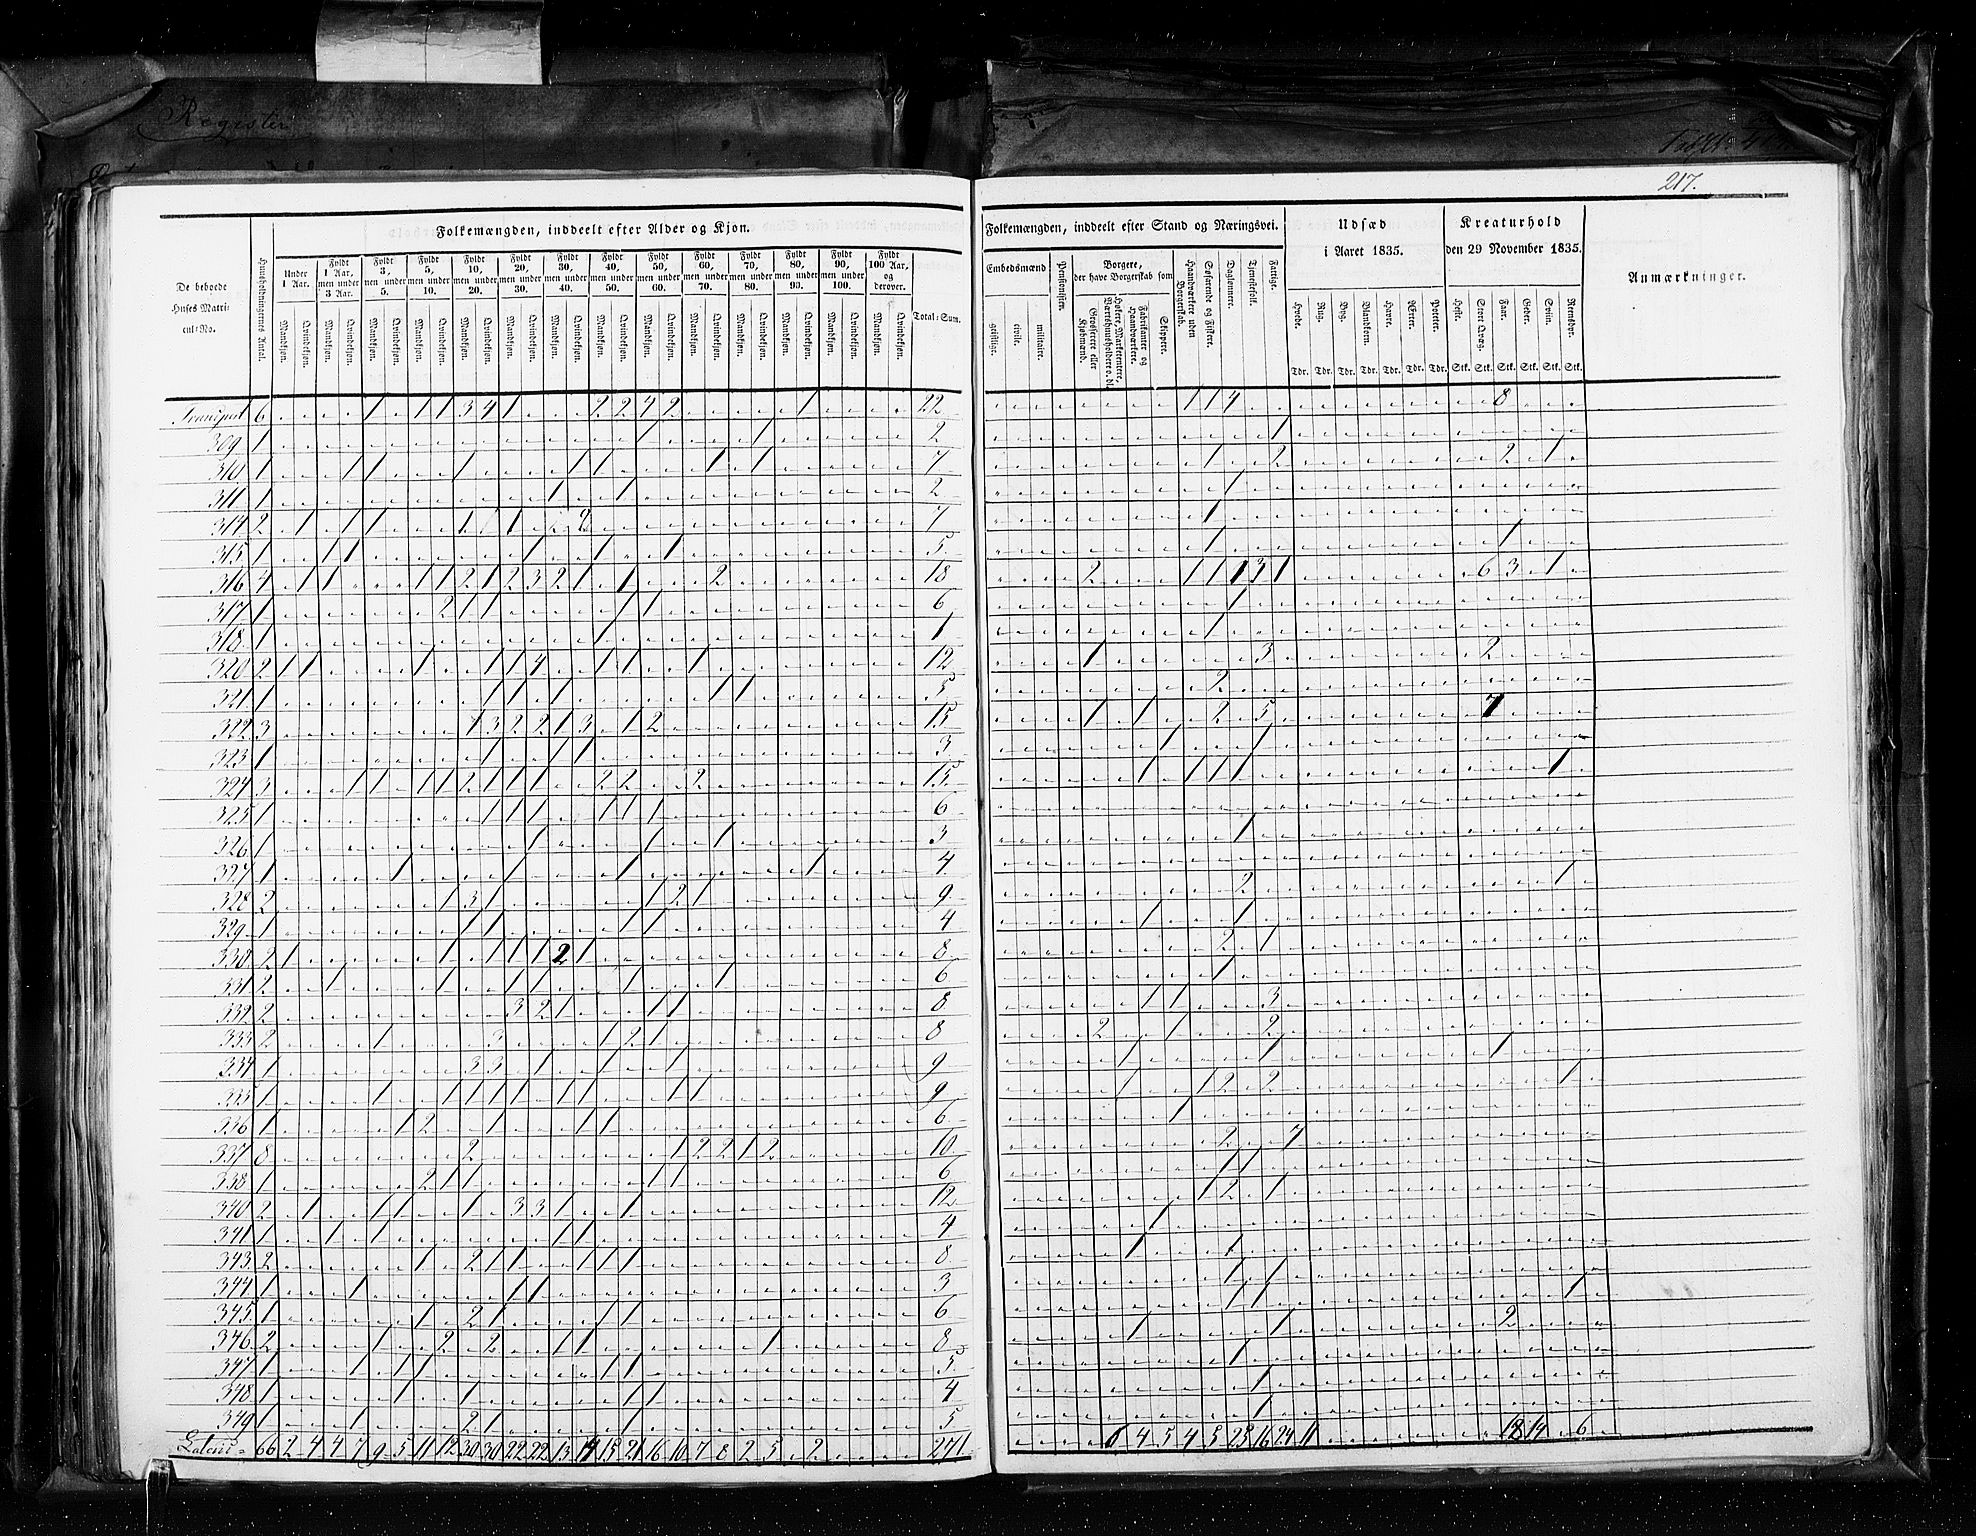 Register
217.
Folkemængden, inddeelt efter Alder og Kjøn.
De beboede Huses Matricul-No.
Huusholdningernes Antal.
Under 1 Aar.
Fyldt 1 Aar, men under 3 Aar.
Fyldt 3, men under 5.
Fyldt 5, men under 10.
Fyldt 10, men under 20.
Fyldt 20, men under 30.
Fyldt 30, men under 40.
Fyldt 40, men under 50.
Fyldt 50, men under 60.
Fyldt 60, men under 70.
Fyldt 70, men under 80.
Fyldt 80, men under 93.
Fyldt 90, men under 100.
Fyldt 100 Aar, og derover.
Mandkjøn. Qvindekjøn.
Total-Sum.
Folkemængden, inddeelt efter Stand og Næringsvei.
Embedsmænd
geistlige. civile. militaire.
Pensionister.
Borgere, der have Borgerskab som
Grosserere eller Kjøbmænd.
Fabrikanter og Haandværkere.
Skippere.
Haandværkere uden Borgerskab.
Søfarende og Fiskere.
Daglønnere.
Tjenestefolk.
Fattige.
Udsæd i Aaret 1835.
Hvede. Rug. Byg. Blandkorn. Havre. Ærter. Poteter.
Tdr. Tdr. Tdr. Tdr. Tdr. Tdr. Tdr.
Kreaturhold den 29 November 1835.
Heste. Stort Qvæg. Faar. Geder. Sviin. Reensdyr.
Stk. Stk. Stk. Stk. Stk. Stk.
Anmærkninger.
Transport 6 1 1 1 3 4 1 2 2 4 2 1 22 1 1 4 8
309 1 1 1 2 1
310 1 1 1 1 1 1 1 1 7 1 2 2 1
311 1 1 1 2 1
314 2 7 1
315 1 1 1 1 1 1 5 1 1
316 4 1 1 1 1 2 1 2 3 2 1 1 2 18 2 1 1 1 3 1 6 3 1
317 1 2 1 1 1 1 6 1
318 1 1 1 1
320 2 1 1 1 1 1 4 1 1 1 12 1 3 2
321 1 1 1 1 1 1 5 2
322 3 1 3 2 2 1 3 1 2 15 1 1 2 5 7
323 1 1 1 1 3 1 1
324 3 1 1 1 1 2 1 1 1 2 2 2 15 1 1 1 1 1
325 1 1 1 1 1 1 1 6
326 1 1 1 1 3 1
327 1 1 1 1 1 4
328 2 1 3 1 1 2 1 9 2 1
329 1 1 1 1 1 4 1 1
330 2 1 1 1 1 1 2 1 8 2 1
331 2 1 1 1 1 1 1 6 1
332 2 3 2 1 1 1 8 1 1 3
333 2 1 3 1 2 1 8 2 1 2
334 1 3 3 1 1 1 9 1 1 1
335 1 1 1 1 1 1 1 1 1 1 9 1 1 2 2 1
336 1 1 2 1 1 1 6 1
337 8 2 1 2 2 1 2 10 2 7
338 1 2 1 1 1 1 6 1 1
340 2 1 1 1 1 3 3 1 1 12 1 2 1
341 1 1 1 1 1 4 1
343 2 1 2 1 1 1 1 1 8 1 1
344 1 1 1 1 3 1 1
345 1 1 2 1 1 1 6 1 1 1
346 2 1 2 2 1 1 1 8 1 1 2
347 1 1 1 1 1 1 5 1
348 1 1 1 1 1 4 1
349 1 1 2 1 1 5 1
Lateris 66 2 4 4 7 9 5 11 12 30 30 22 22 13 14 15 21 16 10 7 8 2 5 2 271 6 4 5 4 5 25 16 24 11 18 14 6